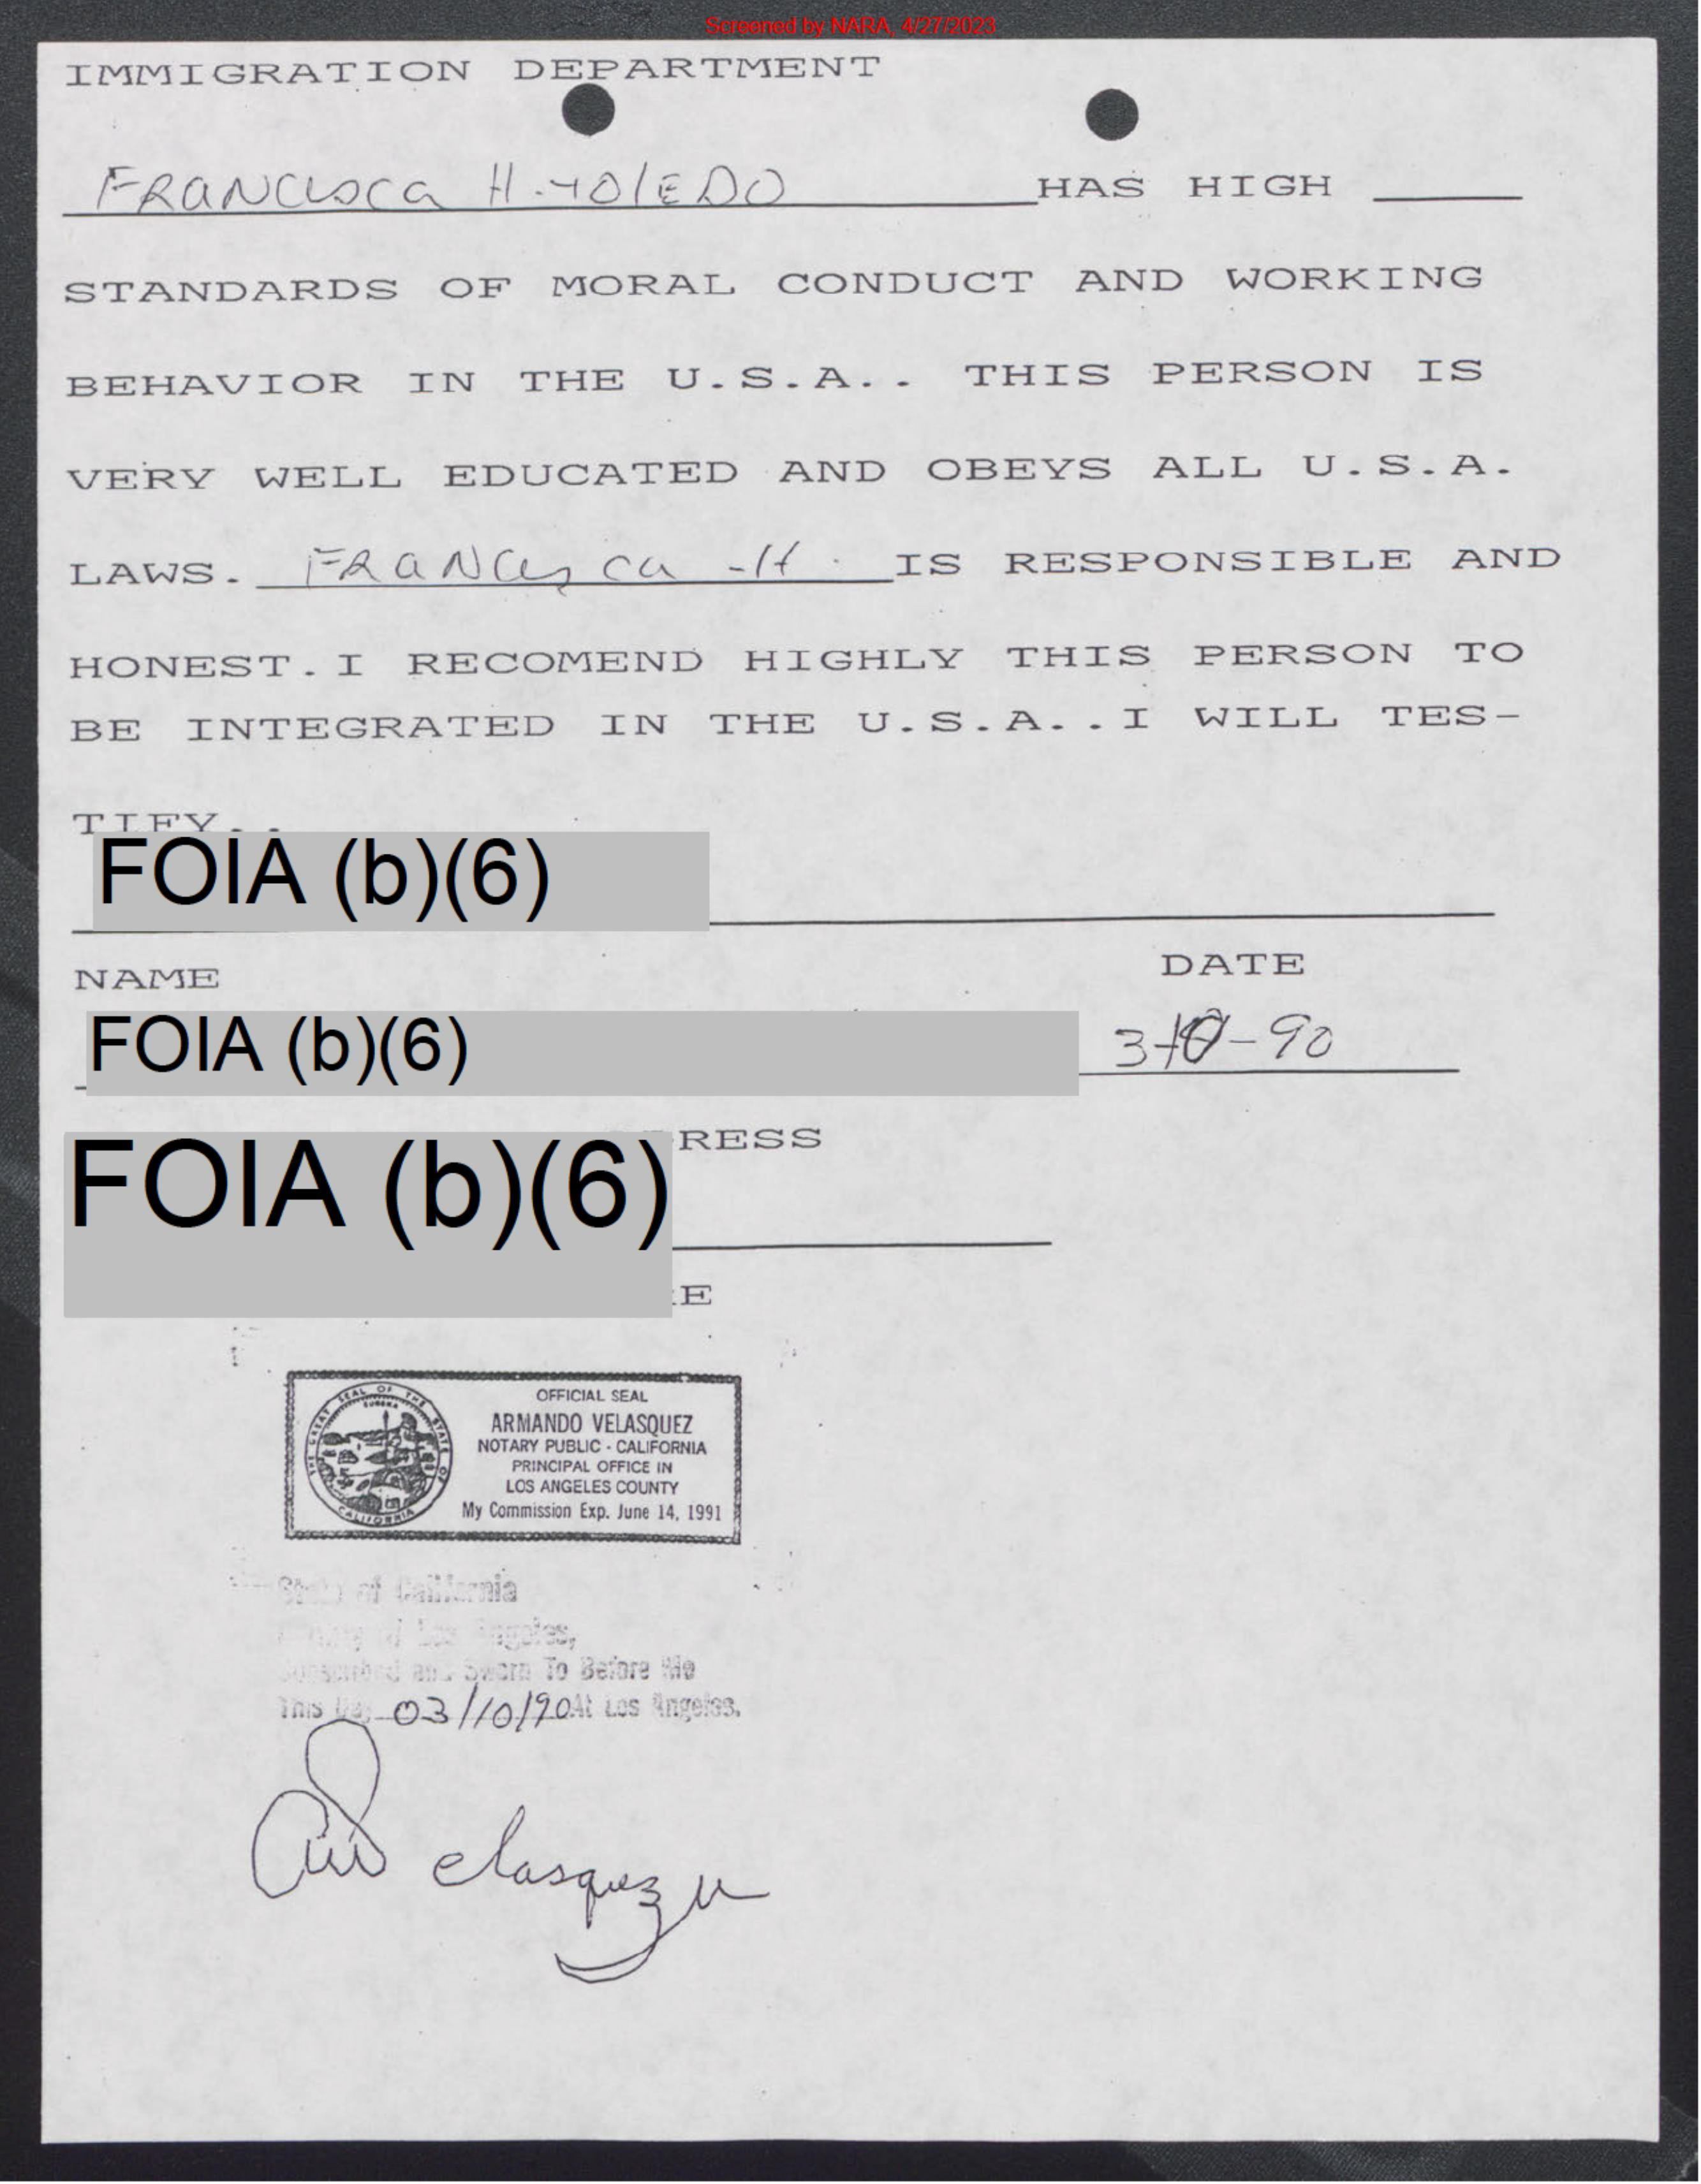 Screened by NARA, 4/27/2023
IMMIGRATION DEPARTMENT
FRANCISCA H. TOLEDO HAS HIGH
STANDARDS OF MORAL CONDUCT AND WORKING
BEHAVIOR IN THE U.S.A.. THIS PERSON IS
VERY WELL EDUCATED AND OBEYS ALL U.S.A.
LAWS. FRANCISCA H. IS RESPONSIBLE AND
HONEST. I RECOMEND HIGHLY THIS PERSON TO
BE INTEGRATED IN THE U.S.A..I WILL TES-
TIFY..
FOIA (b)(6)
NAME DATE
FOIA (b)(6) 3-10-90
RESS
FOIA (b)(6)
E
THE GREAT SEAL OF THE STATE OF CALIFORNIA
EUREKA
OFFICIAL SEAL
ARMANDO VELASQUEZ
NOTARY PUBLIC - CALIFORNIA
PRINCIPAL OFFICE IN
LOS ANGELES COUNTY
My Commission Exp. June 14, 1991
State of California
County of Los Angeles,
Subscribed and Sworn To Before Me
This Day 03/10/90 At Los Angeles.
Velasquez